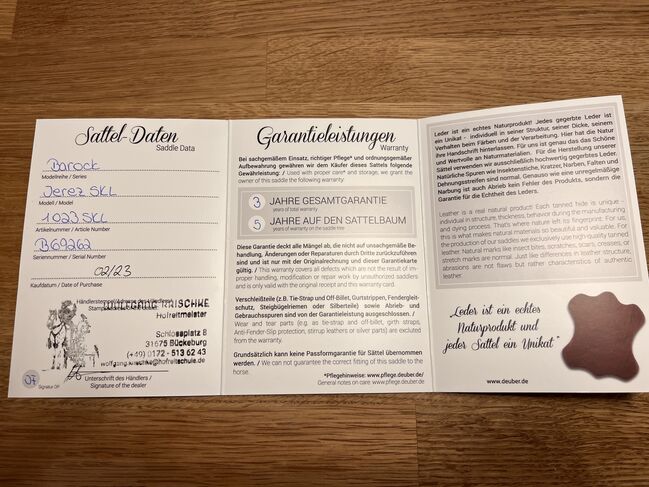 Sattel-Daten
Saddle Data
Barock
Modellreihe / Series
Jerez SKL
Modell / Model
1023 SKL
Artikelnummer / Article Number
B69262
Seriennummer / Serial Number
02/23
Kaufdatum / Date of Purchase
Händlerstempel/Adresse des Händlers
Hofreitmeister
Schlossplatz 8
31675 Bückeburg
(+49) 0172 - 513 62 43
wolfgang.krischke@hofreitschule.de
Unterschrift des Händlers /
Signature of the dealer
Signatur DP
Garantieleistungen
Warranty
Bei sachgemäßem Einsatz, richtiger Pflege* und ordnungsgemäßer
Aufbewahrung gewähren wir dem Käufer dieses Sattels folgende
Gewährleistung: / Used with proper care* and storage, we grant the
owner of this saddle the following warranty:
3 JAHRE GESAMTGARANTIE
years of total warranty
5 JAHRE AUF DEN SATTELBAUM
years of warranty on the saddle tree
Diese Garantie deckt alle Mängel ab, die nicht auf unsachgemäße Be-
handlung, Änderungen oder Reparaturen durch Dritte zurückzuführen
sind und ist nur mit der Originalrechnung und dieser Garantiekarte
gültig. / This warranty covers all defects which are not the result of im-
proper handling, modification or repair work by unauthorized saddlers
and is only valid with the original receipt and this warranty card.
Verschleißteile (z.B. Tie-Strap und Off-Billet, Gurtstrippen, Fendergleit-
schutz, Steigbügelriemen oder Silberteile) sowie Abrieb- und
Gebrauchsspuren sind von der Garantieleistung ausgeschlossen. /
Wear and tear parts (e.g. as tie-strap and off-billet, girth straps,
Anti-Fender-Slip protection, stirrup leathers or silver parts) are excluded
from the warranty.
Grundsätzlich kann keine Passformgarantie für Sättel übernommen
werden. / We can not guarantee the correct fitting of this saddle to the
horse.
*Pflegehinweise: www.pflege.deuber.de/
General notes on care: www.pflege.deuber.de
Leder ist ein echtes Naturprodukt! Jedes gegerbte Leder ist
ein Unikat - individuell in seiner Struktur, seiner Dicke, seinem
Verhalten beim Färben und der Verarbeitung. Hier hat die Natur
ihre Handschrift hinterlassen. Für uns ist genau das das Schöne
und Wertvolle an Naturmaterialien. Für die Herstellung unserer
Sättel verwenden wir ausschließlich hochwertig gegerbtes Leder.
Natürliche Spuren wie Insektenstiche, Kratzer, Narben, Falten und
Dehnungsstreifen sind normal. Genauso wie eine unregelmäßige
Narbung ist auch Abrieb kein Fehler des Produkts, sondern die
Garantie für die Echtheit des Leders.
Leather is a real natural product! Each tanned hide is unique -
individual in structure, thickness, behavior during the manufacturing
and dying process. That's where nature left its fingerprint. For us,
this is what makes natural materials so beautiful and valuable. For
the production of our saddles we exclusively use high quality tanned
leather. Natural marks like insect bites, scratches, scars, creases, or
stretch marks are normal. Just like differences in leather structure,
abrasions are not flaws but rather characteristics of authentic
leather.
„Leder ist ein echtes
Naturprodukt und
jeder Sattel ein Unikat“
www.deuber.de